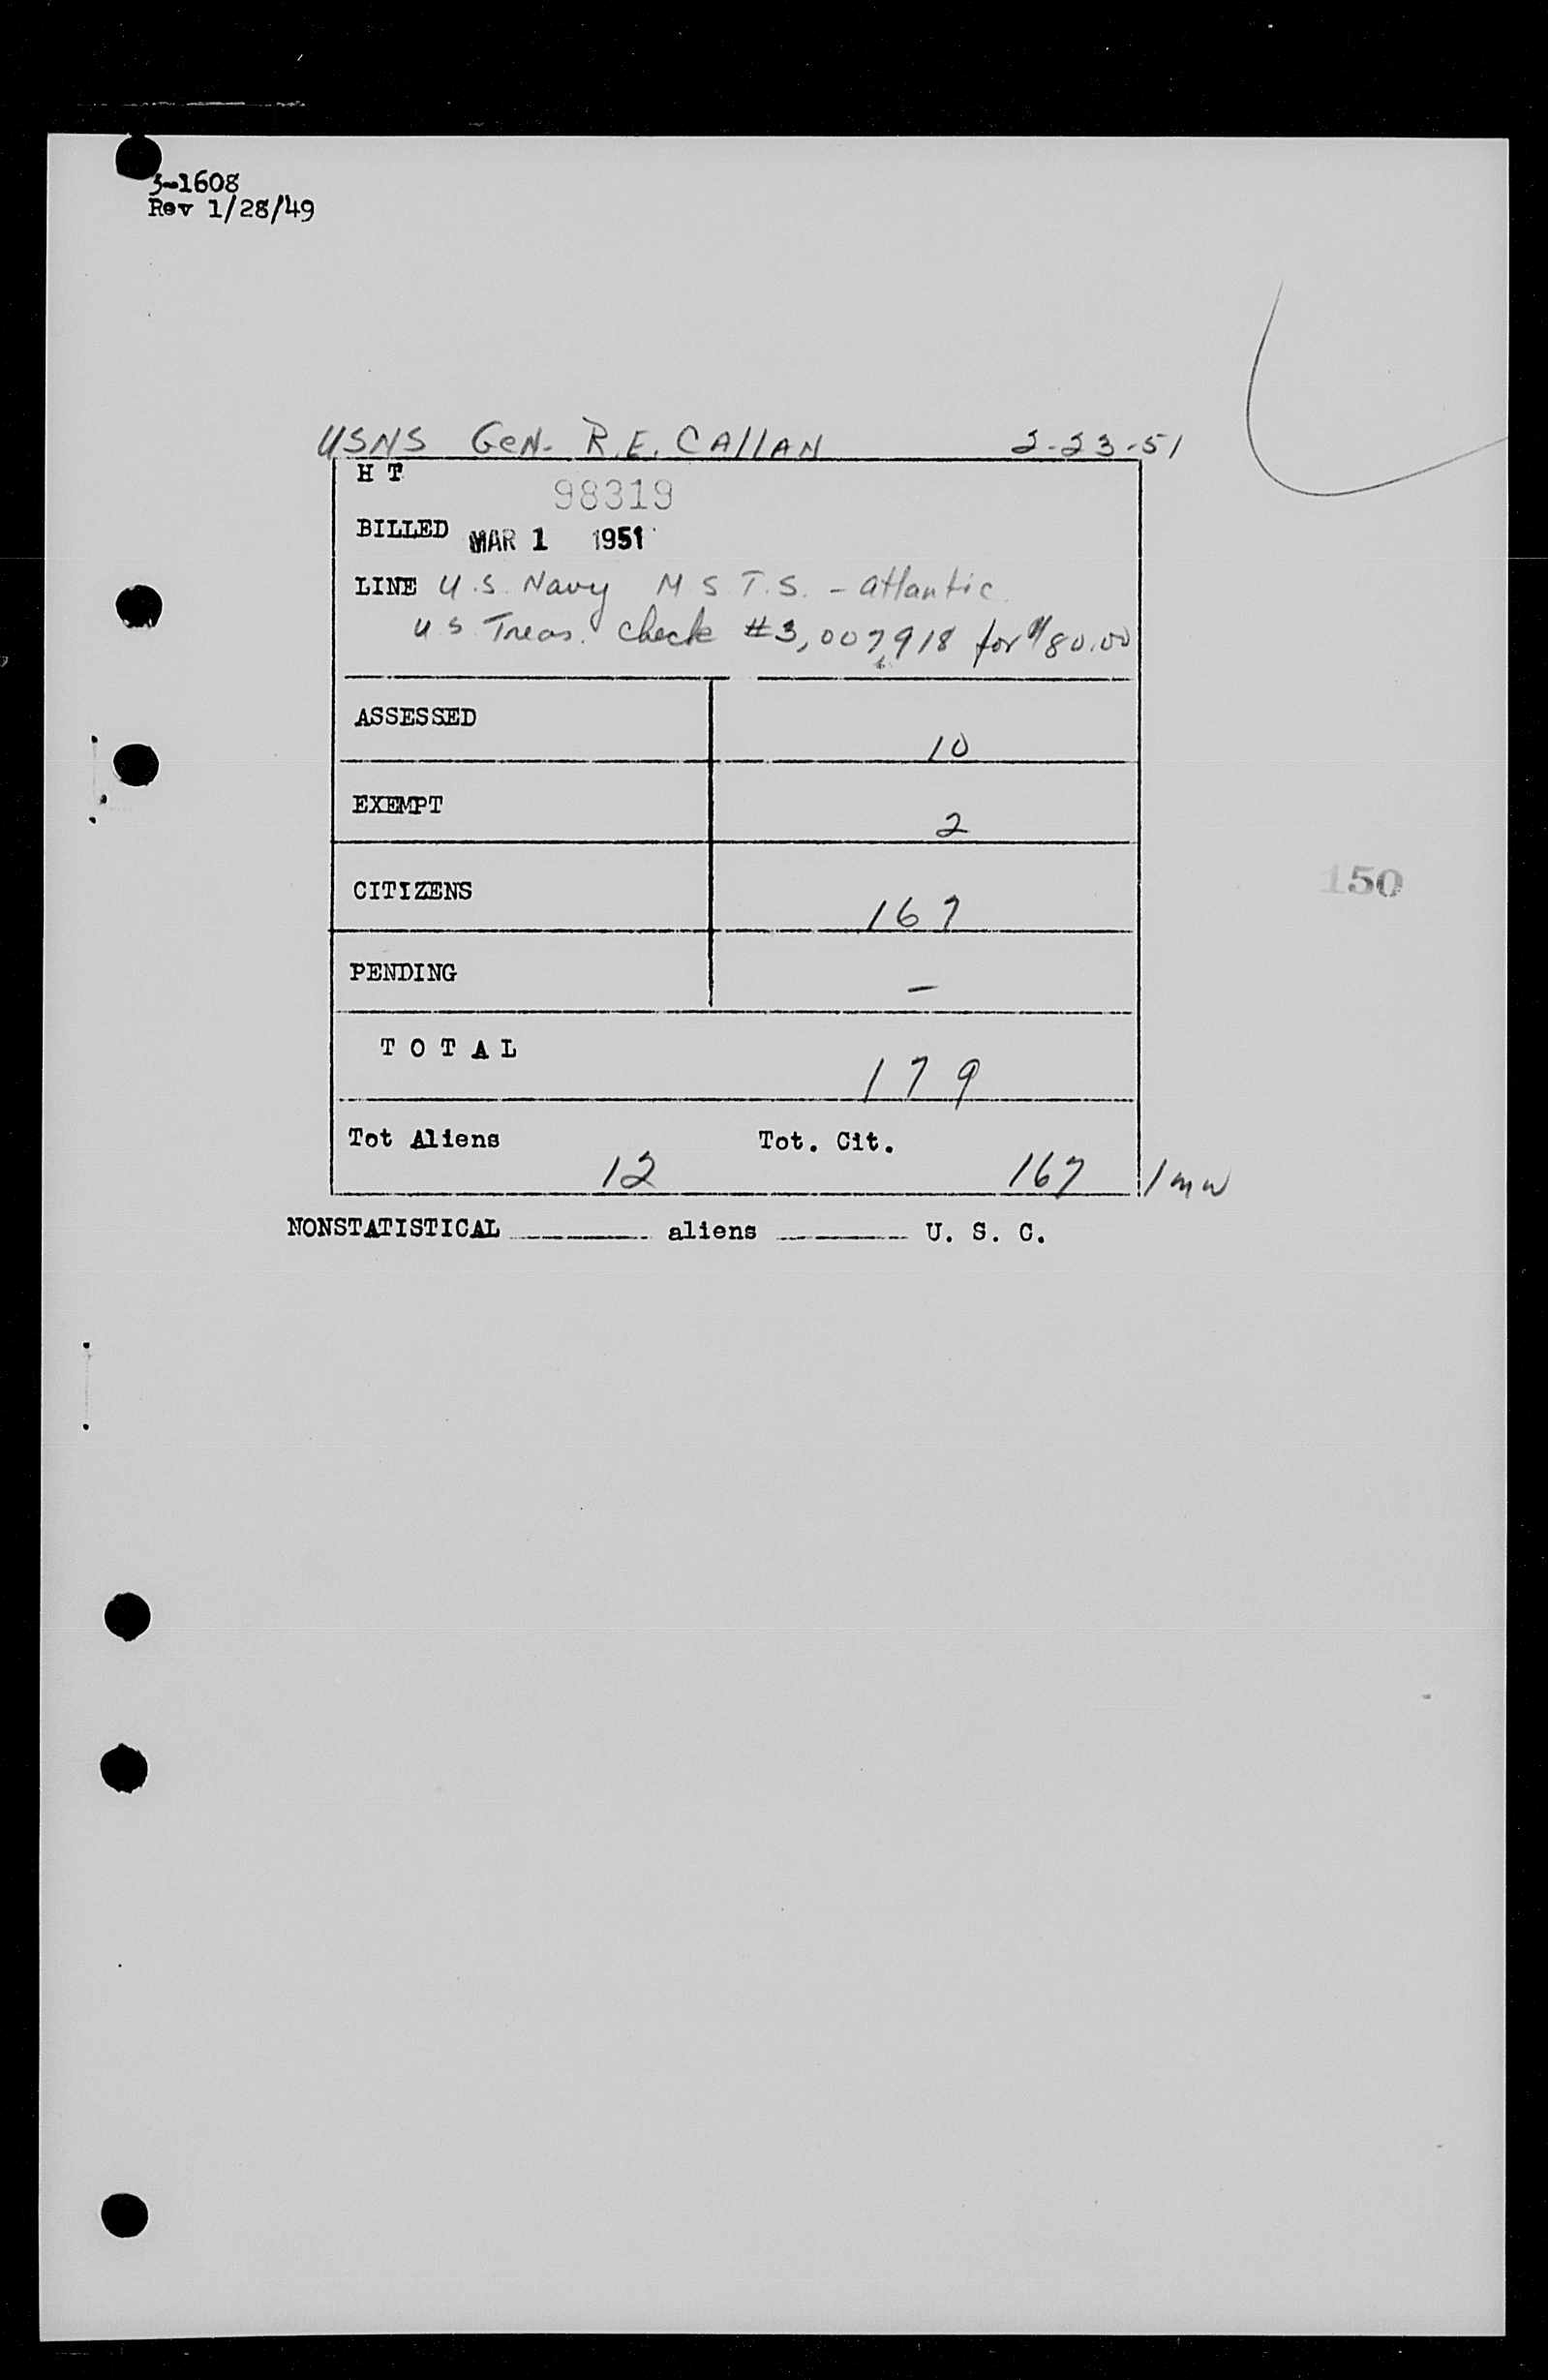 3-1608
Rev 1/28/49
USNS Gen. R.E. CAllAN 2-23-51
H T
98319
BILLED MAR 1 1951
LINE U.S. Navy M S.T.S. - Atlantic
U S Treas. Check #3,007,918 for $80.00
ASSESSED 10
EXEMPT 2
CITIZENS 167
150
PENDING -
T O T A L 179
Tot Aliens 12 Tot. Cit. 167 1 mw
NONSTATISTICAL ________ aliens ________ U. S. C.